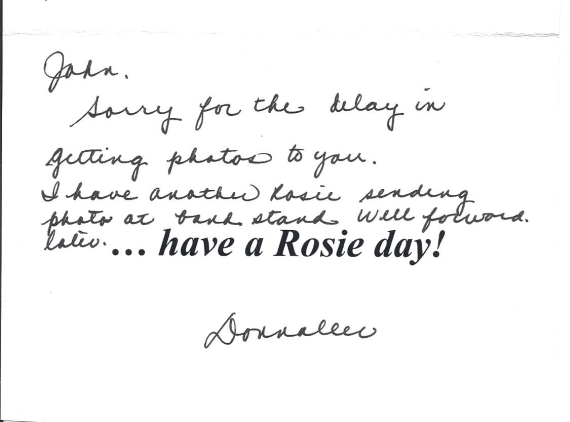 John.
Sorry for the delay in
getting photos to you.
I have another Rosie sending
photo at band stand Will forward.
later. ... have a Rosie day!
Donnalee